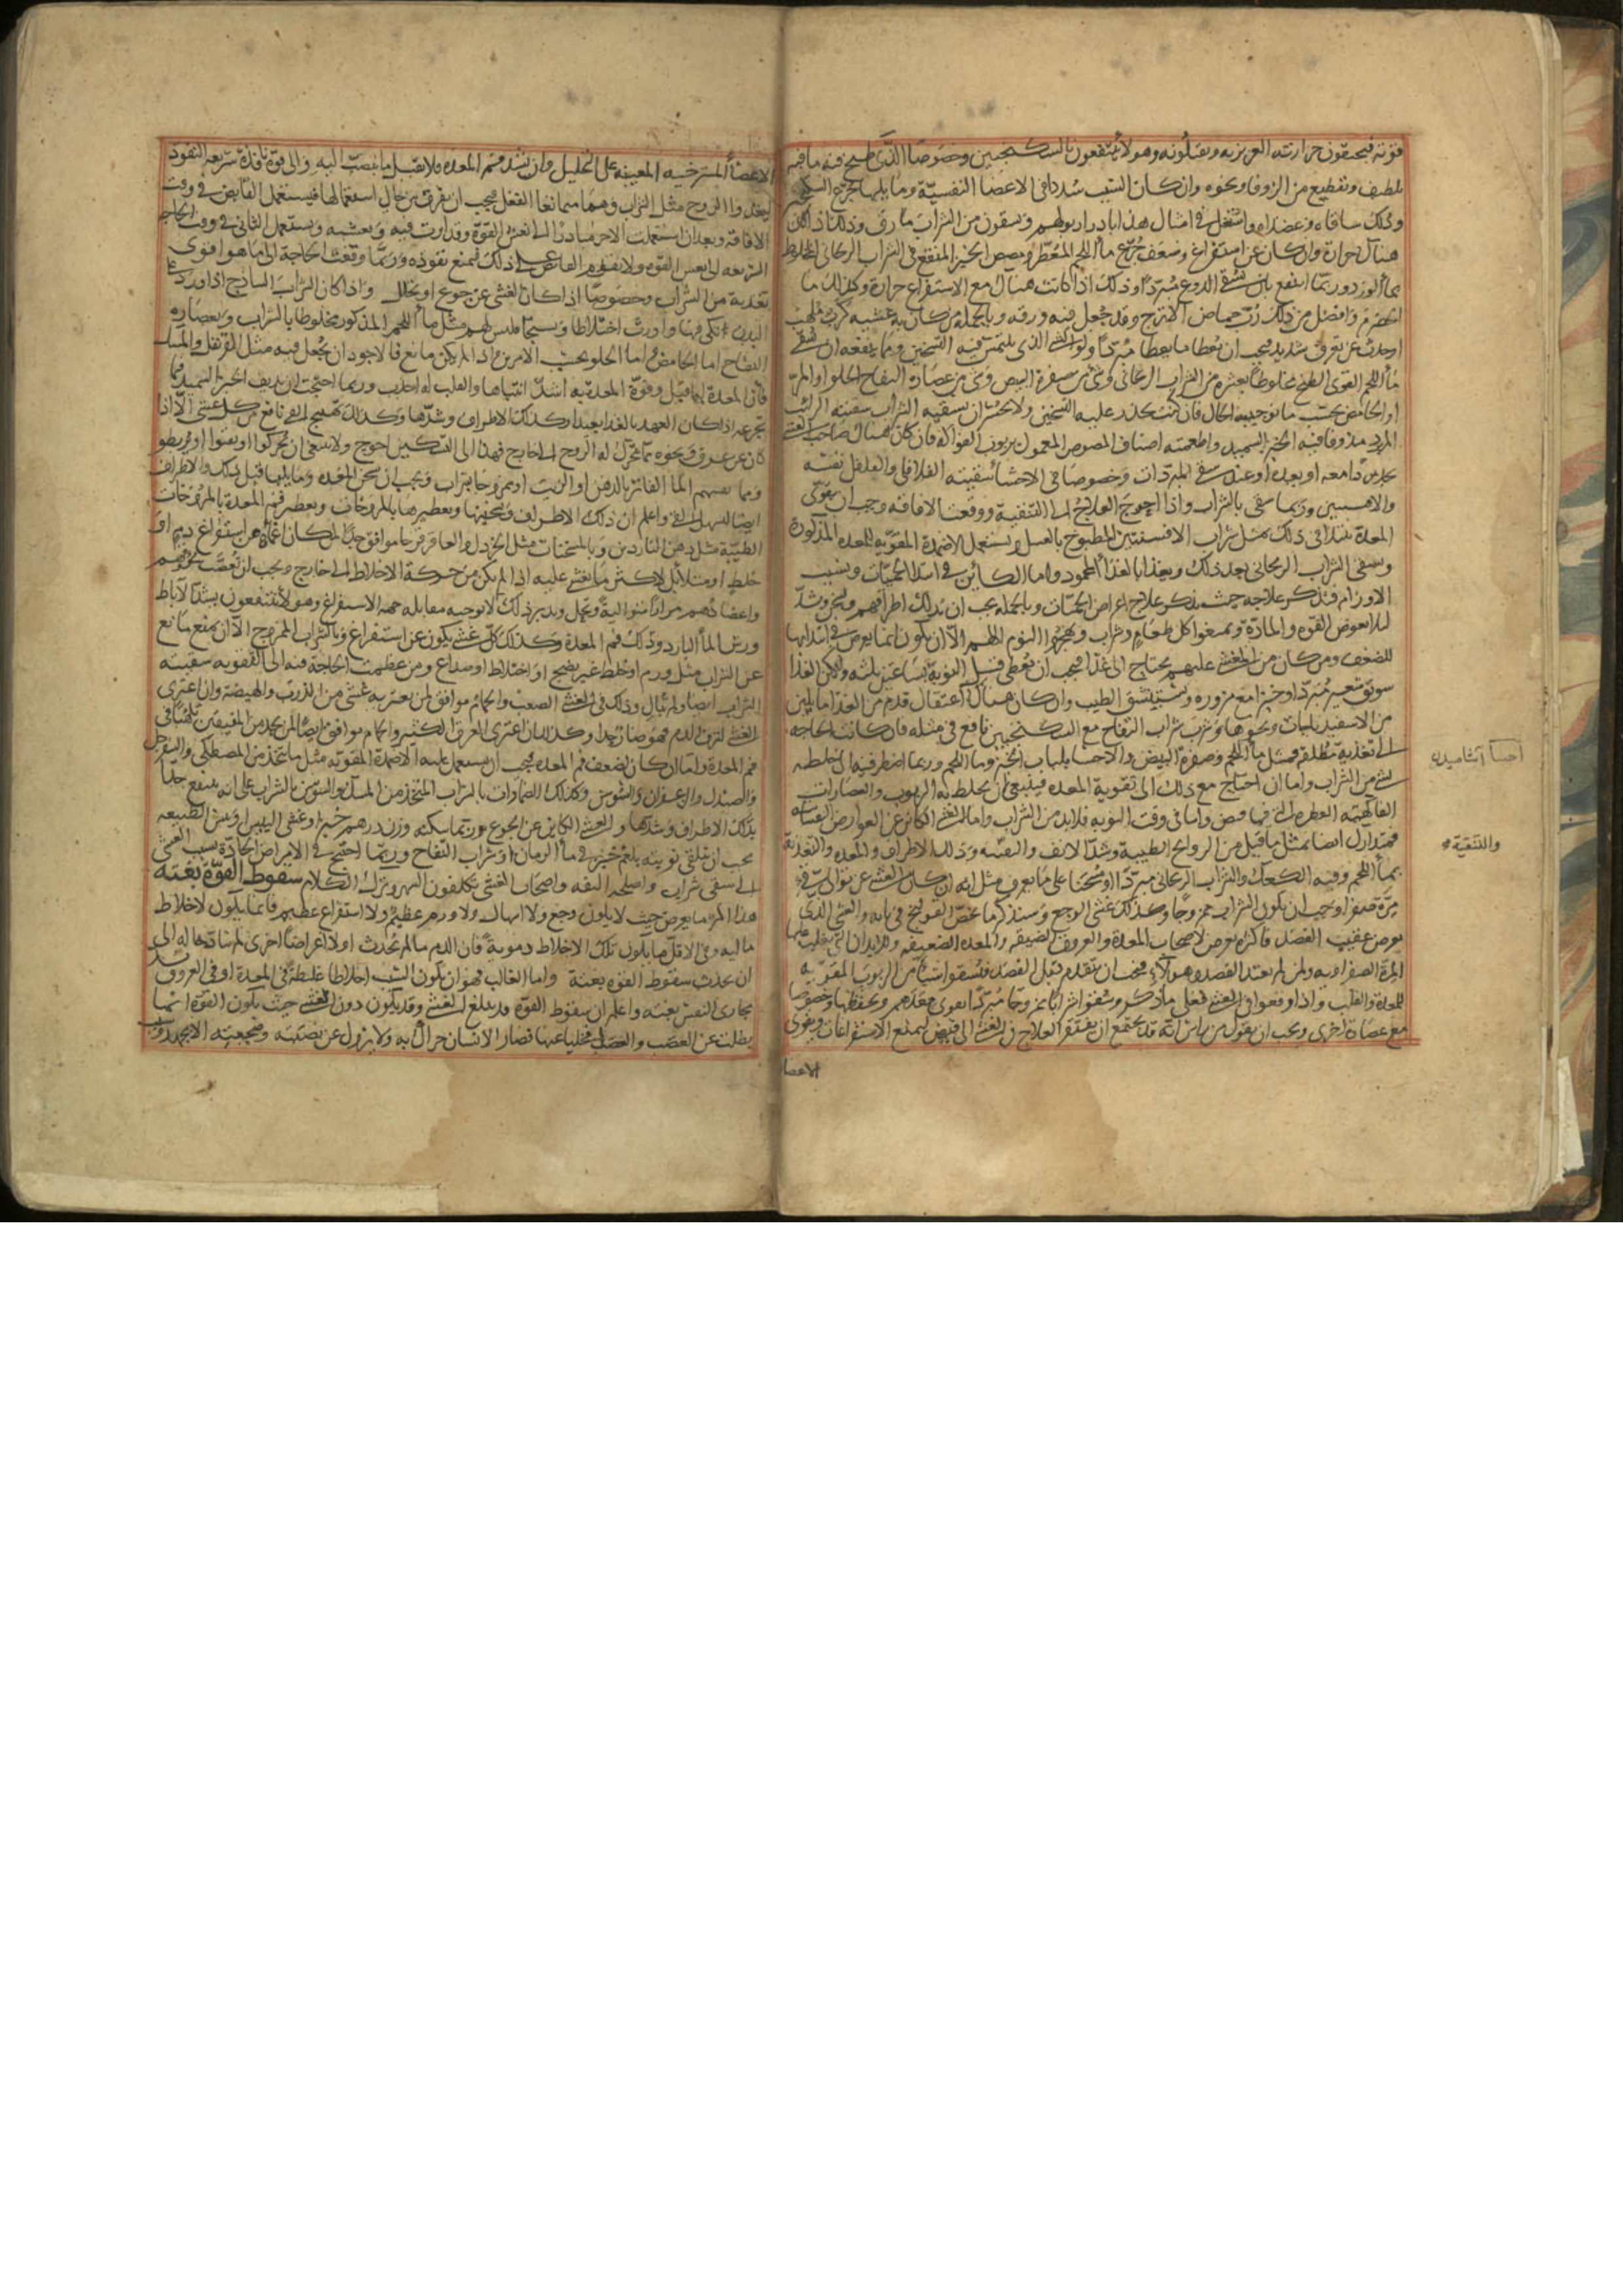 قوته فيحمقون حرارته الغريزيه ويقتلونه وهولا ينتفعون بالسكنجبين وخصوصا الذى طبخ فيه ما فيه
تلطيف وتقطيع من الزوفا ونحوه وان كان السبب سددا فى الاعضا النفسيّة وما يليها
ودلك ساقاه وعضداه واشتغل فى امثال هذا بادرار بولهم ويسقون من الشراب ما رق وذلك اذا لم يكن
هناك حرارة وان كان عن استفراغ وضعف جُرّع ماء اللحم المعطّر ومصص الخبز المنقع فى الشراب الريحانى المخلوط
بماء الورد وربّما انتفع بان يسقى الدوغ مبرّدًا وذلك اذا كانت هناك مع الاستفراغ حرارة وكذلك ما
الحصرم وافضل من ذلك ربّ حماض الاترج وقد جُعل فيه ورقه وبالجملة من كان به غشيه كرب ملهب
او حدث عن تعرق شديد فيجب ان يُعطا ما يعطا مُبرّدًا ولو الذى يلتمس فيه التسخين ومما ينفعه ان يسقى
ماء اللحم القوى الطبخ مخلوطًا بعشره من الشراب الريحانى وشئ من صفرة البيض وشئ من عصارة التفاح الحلو او المرّ
او الحامض بحسب ما توجبه الحال فان كنت تحذر عليه التسخين ولا تجسر ان تسقيه الشراب سقيته الرائب
المبرد مدوفا فيه الخبز السميد واطعمته اصناف المصوص المعمول بربوب الفواكه فان كان هناك صاحب الغشى
يجد بردا معه او بعده او عند سقى المبرّدات وخصوصا فى الاحشا سقيته الفلافلى والفلفل نفسه
والافسنتين وربما سقى بالشراب واذا احوج العلاج الى التنقية ووقعت الافاقه وجب ان يقوّى
المعدة نبتدا فى ذلك بمثل شراب الافسنتين المطبوخ بالعسل ويستعمل الاضمدة المقوّيه للمعده المذكورة
ويسقى الشراب الريحانى بعد ذلك ويغذا بالغذا المحمود واما الكائن فى ابتدا الحميّات وبسبب
الاورام فنذكر علاجه حيث نذكر علاج اعراض الحميّات وبالجمله يجب ان يدلك اطرافهم وتسخّن وتشدّ
لئلا تغوص القوّه والمادّة ويمنعوا كل طعام وشراب ويهجروا النوم اللهم الّا ان يكون انما يعرض فى ابتدائها
للضعف ومن كان من المغشى عليهم يحتاج الى غذا فيجب ان يُعطى قبل النوبة بساعتين بلثه وليكن الغذا
سويق شعير مبردًا او خبزا مع مزوره وتستنشق الطيب وان كان هناك اعتقال قدم من الغذا ما يلين
من الاسفيذباجات ونحوها وشرب شراب التفاح مع السكنجبين نافع فى مثله فان كانت الحاجه
الى تغذية مطلقة فمثل ماء اللحم وصفرة البيض والاحسا بلباب الخبز وما اللحم وربما اضطر فيه ان يخلطه
بشئ من الشراب واما ان احتاج مع ذلك الى تقوية المعده فينبغى ان يخلط به الربوب والعصارات
الفاكهيّه العطره التى فيها قبض واما فى وقت النوبه فلا بد من الشراب واما الغشى الكائن عن العوارض النفسانيه
فيتدارك ايضا بمثل ما قيل من الروايح الطيبه وشدّ الانف والتقيئه ودلك الاطراف والمعده والتغذية
بماء اللحم وفيه الكعك والشراب الريحانى مبرّدًا او مسخنًا على ما يعرف مثل انه ان كان الغشى عن توالى قى
مرّة صفرا وجب ان يكون الشراب ممزوجًا وكذلك غشى الوجع وسنذكر ما يخصّ القولنج فى بابه والغشى الذى
يعرض عقيب الفصد فاكثره يعرض لاصحاب المعدة والعروق الضيقه والمعده الضعيفه والابدان التى يغلب عليها
المرّة الصفراويه ولمن لم يعتد الفصد وهولاء فيجب ان يتقدم قبل الفصد فيُسقوا شيا من الربوب المقوّيه
للمعدة والقلب واذا وقعوا فى الغشى فعل ما ذكر وسُقوا شرابًا ممزوجًا مُبردًا يقوى معدهم ويحفظها وخصوصا
مع عصارة اخرى ويجب ان نقول من راس انّه قد يجتمع ان يفتقر العلاج فى الغشى الى قبض ليمنع الاستفراغات ويقوى
الاعضا
احسا آشاميدن
والتنقية
الاعضا المسترخيه المعينه على التحليل وان يشد فم المعده ولا يقبل ما ينصبّ اليه والى قوّة نافذة سريعه النفوذ
ليغذوا الروح مثل الشراب وهما متمانعا الفعل فيجب ان يفرق بين حال استعمالها فيستعمل القابض فى وقت
الافاقه وبعد ان استعملت الاخر مبادرًا الى نعش القوّة وقد اثرت فيه ونعشته ويستعمل الثانى فى وقت الحاجه
السريعه الى نعش القوه ولا يقدم القابض على ذلك فيمنع نفوذه وربّما وقعت الحاجة الى ما هو اقوى
تغذية من الشراب وخصوصًا اذا كان الغشى عن جوع او تحلل واذا كان الشراب الساذج اذا ورد على
البدن انكى فيها واورث اختلاطًا وتشنجًا فليس لهم مثل ماء اللحم المذكور مخلوطًا بالشراب وبعصاره
التفاح اما الحامض واما الحلو بحسب الامرين واذا لم يكن مانع فالاجود ان يُجعل فيه مثل القرنفل والمسك
فان المعدة لهما اقبل وقوّة المعدة به اشدّ انتباها والقلب له اجذب وربما احتجت ان يذيف الخبز السميد فيما
يتجرعه اذا كان العهد بالغذا بعيدا وكذلك الاطراف وشدّها وكذلك تهييج القى نافع من كل غشى الّا اذا
كان عن عرق ونحوه مما يتحرّك له الروح الى خارج فهذا الى التسكين احوج ولا ينبغى ان يحركوا او يقيئوا او يربطوا
ومما يقيئهم الما الفاتر بالدهن او الزيت او ممزوجا بشراب ويجب ان يسخن المعده وما يليها قبل ذلك والاطراف
ايضا ليسهل القى واعلم ان دلك الاطراف وتسخينها وتعطيرها بالمروخات وتعطير فم المعدة بالمروخات
الطيّبة مثل دهن الناردين وبالمسخنات مثل الخردل والعاقرقرحا موافق جدّا لمن كان غشيه عن استفراغ دم او
خلط او امتلا بل لاكثر ما يغشى عليه اذا لم يكن من حركة الاخلاط الى خارج ويجب ان تعصّب سوقهم
واعضادهم مرارًا متواليةً وتحلّ ويدبر ذلك لا يوجبه مقابله جهة الاستفراغ وهولا ينتفعون بشدّ الآباط
ورش الماء البارد ودلك فم المعدة وكذلك كلّ غشى يكون عن استفراغ وبالشراب الممزوج الّا ان يمنع مانع
عن الشراب مثل ورم او خلط غير نضيج او اختلاط او صداع ومن عظمت الحاجة فيه الى التقويه سقيته
الشراب ايضا ولم تُبال وذلك فى الغشى الصعب والحمّام موافق لمن يعتريه غشى من الذرب والهيضة وان اعترى
الغشى لنزف الدم فهو ضارّ جدا وكذلك ان اعترى العرق الكثير والحمام موافق ايضًا لمن يجد من المفيقين تلهّبًا فى
فم المعدة واما ان كان لضعف فم المعده فيجب ان يستعمل عليه الاضمدة المقوّيه مثل ما يتخذ من المصطكى والسفرجل
والصندل والزعفران والسوسن وكذلك الضمادات بالشراب المتخذ من المسك والسوسن بالشراب على انه ينتفع جدًّا
بدلك الاطراف وشدّها والغشى الكاين عن الجوع ربّما سكّنه وزن درهم خبز او غشى اليبس وقبض الطبيعه
يجب ان تتلقى نوبته بلقم خبز فى ماء الرمان او شراب التفاح وربّما احتيج فى الامراض الحادّة بسبب الغشى
الى سقى شراب واصلحه التفه واصحاب الغشى يكلفون السهر وترك الكلام سقوط القوّة بغتة
هذا اكثر ما يعرض حيث لا يكون وجع ولا اسهال ولا ورم عظيم ولا استفراغ عظيم فانما يكون لاخلاط
ماليه وفى الاقل ما يكون تلك الاخلاط دمويةً فان الدم ما لم يُحدث اولا اعراضًا اخرى لم يتاد حاله الى
ان يحدث سقوط القوه بغتة واما الغالب فهو ان يكون السبب اخلاطا غليظةً فى المعدة او فى العروق تسد
مجارى النفس بغته واعلم ان سقوط القوّه قد يبلغ الغشى وقد يكون دون الغشى حيث يكون القوّة انما
بطلت عن العصب والعضل فخليا عنها فصار الانسان لا حراك به ولا يزول عن نصبته وضجعيته الا بجهد